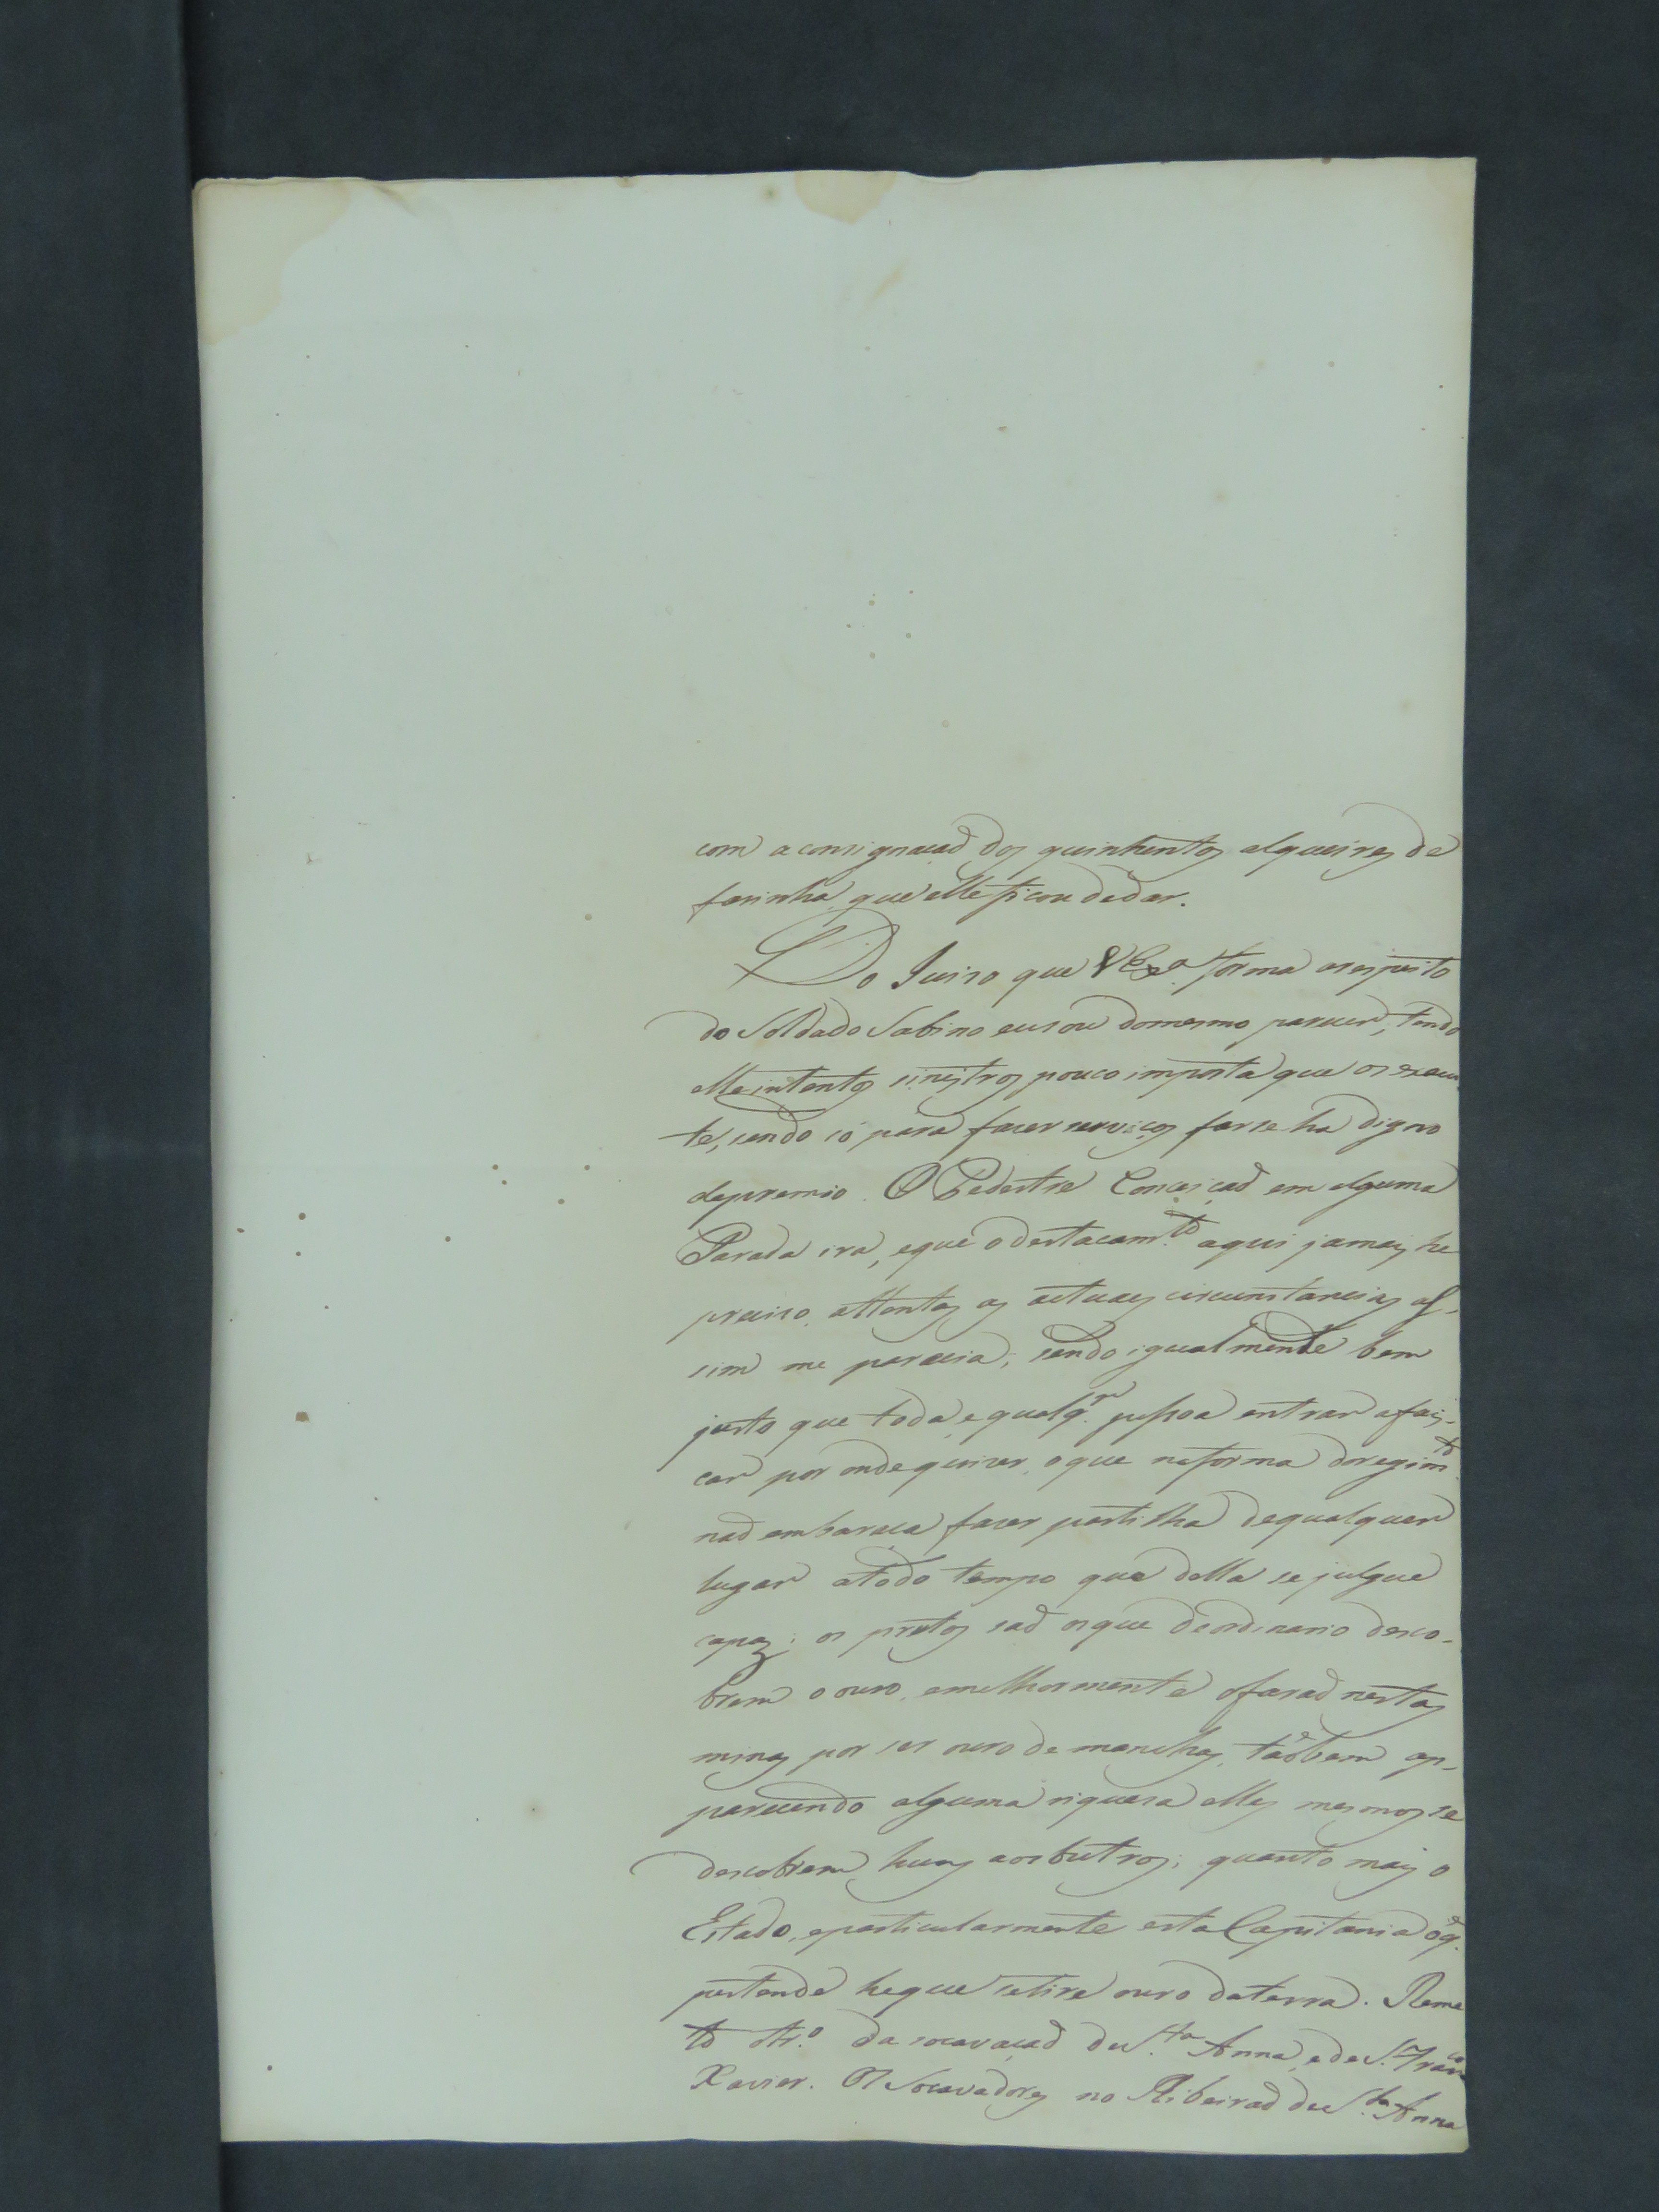 com a consignaçaõ dos quinhentos alqueires de
farinha que elle ficou de dar.
Do Juiso que VEx.a forma arespeito
do Soldado Sabino eu sou do mesmo parecer, tendo
elle intentos sinistros pouco importa que os execu
te, sendo só para faser serviços farseha digno
depremio. O Pedestre Conceiçaõ em alguma
Parada irá, eque o destacam.to aqui jamais he
preciso attentas as actuaes circunstancias as-
sim me parecia; sendo igualmente bem
justo que toda, e qualq.r pessoa entrar a fais-
car por onde quiser, o que na forma do regim.to
naõ embaraça faser partilha de qualquer
lugar atodo tempo que della se julgue
capaz; os pretos saõ os que de ordinario desco-
brem o ouro, emelhormente o faraõ nestas
minas por ser ouro de manchas, taõbem ap-
parecendo alguma riquesa elles mesmos se
descobrem huns aos outros; quanto mais o
Estado, e particularmente esta Capitania o q.
pertende he que se tire ouro da terra. Reme
to o tr.o da socavaçaõ de S.ta Anna, e de S. Fran.co
Xavier. Os Socavadores no Ribeiraõ de S.ta Anna